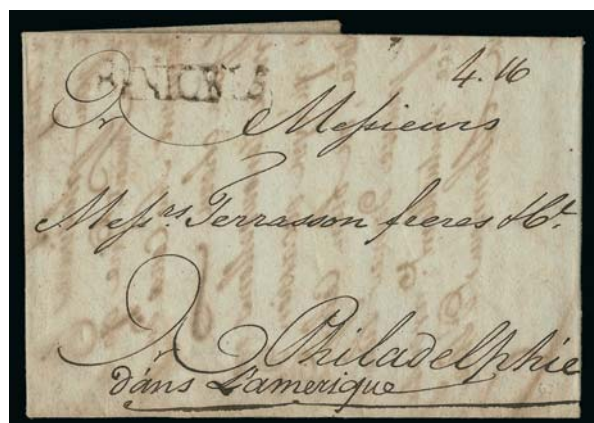 4.16
Messieurs
Messrs. Terrasson freres & Ce.
A Philadelphie
dans L'amerique